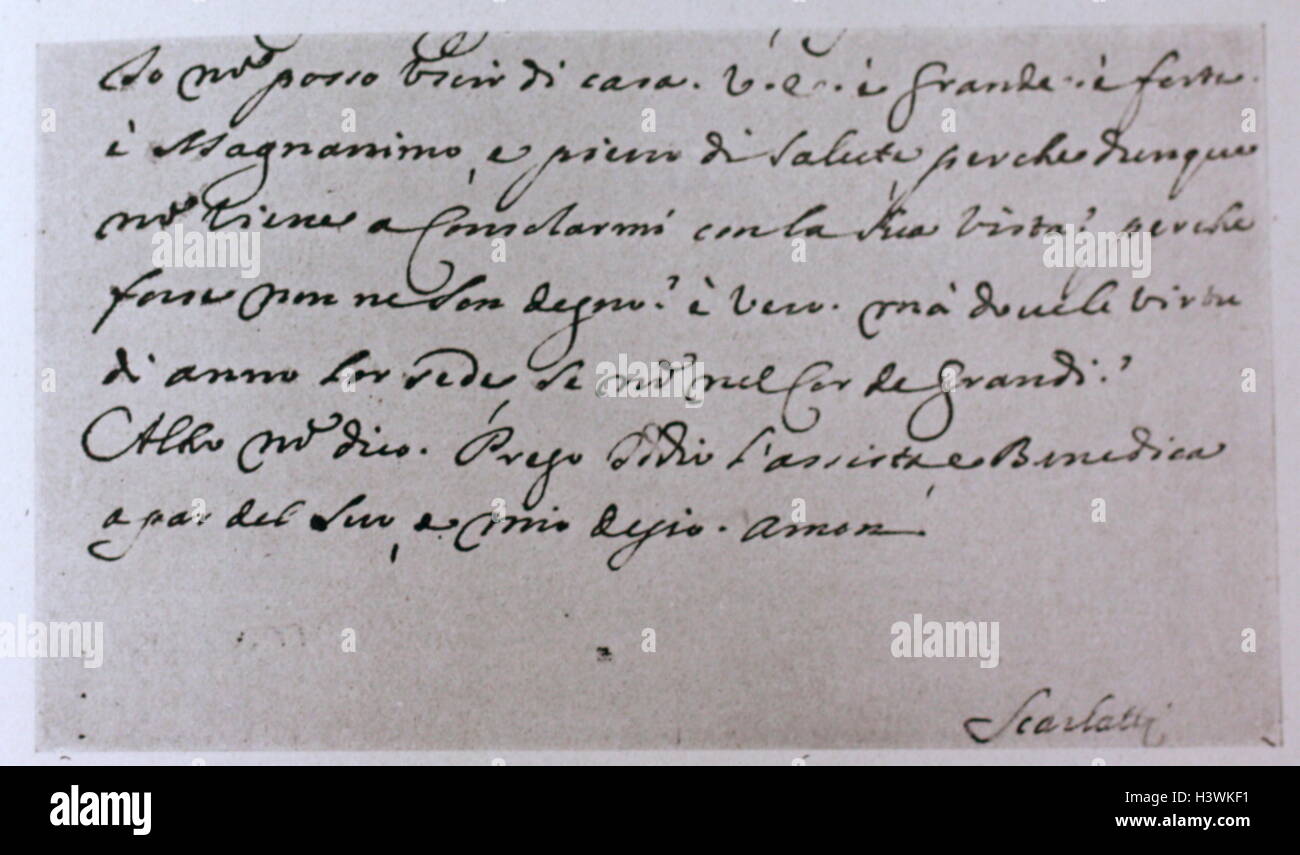 Io nõ posso Uscir di casa. V. E. è grande. è forte.
è Magnanimo, e pieno di Salute perche dunque
nõ Viene a Consolarmi con la Sua Vista? perche
forse non ne Son degno? è Vero. mà doue le virtu
di anno lor sede, se nõ nel Cor de Grandi?
Altro nõ dico. Prego Iddio l'assista, e Benedica
a par del Suo, e mio desio. Amen.
Scarlatti
alamy
alamy stock photo
H3WKF1
www.alamy.com